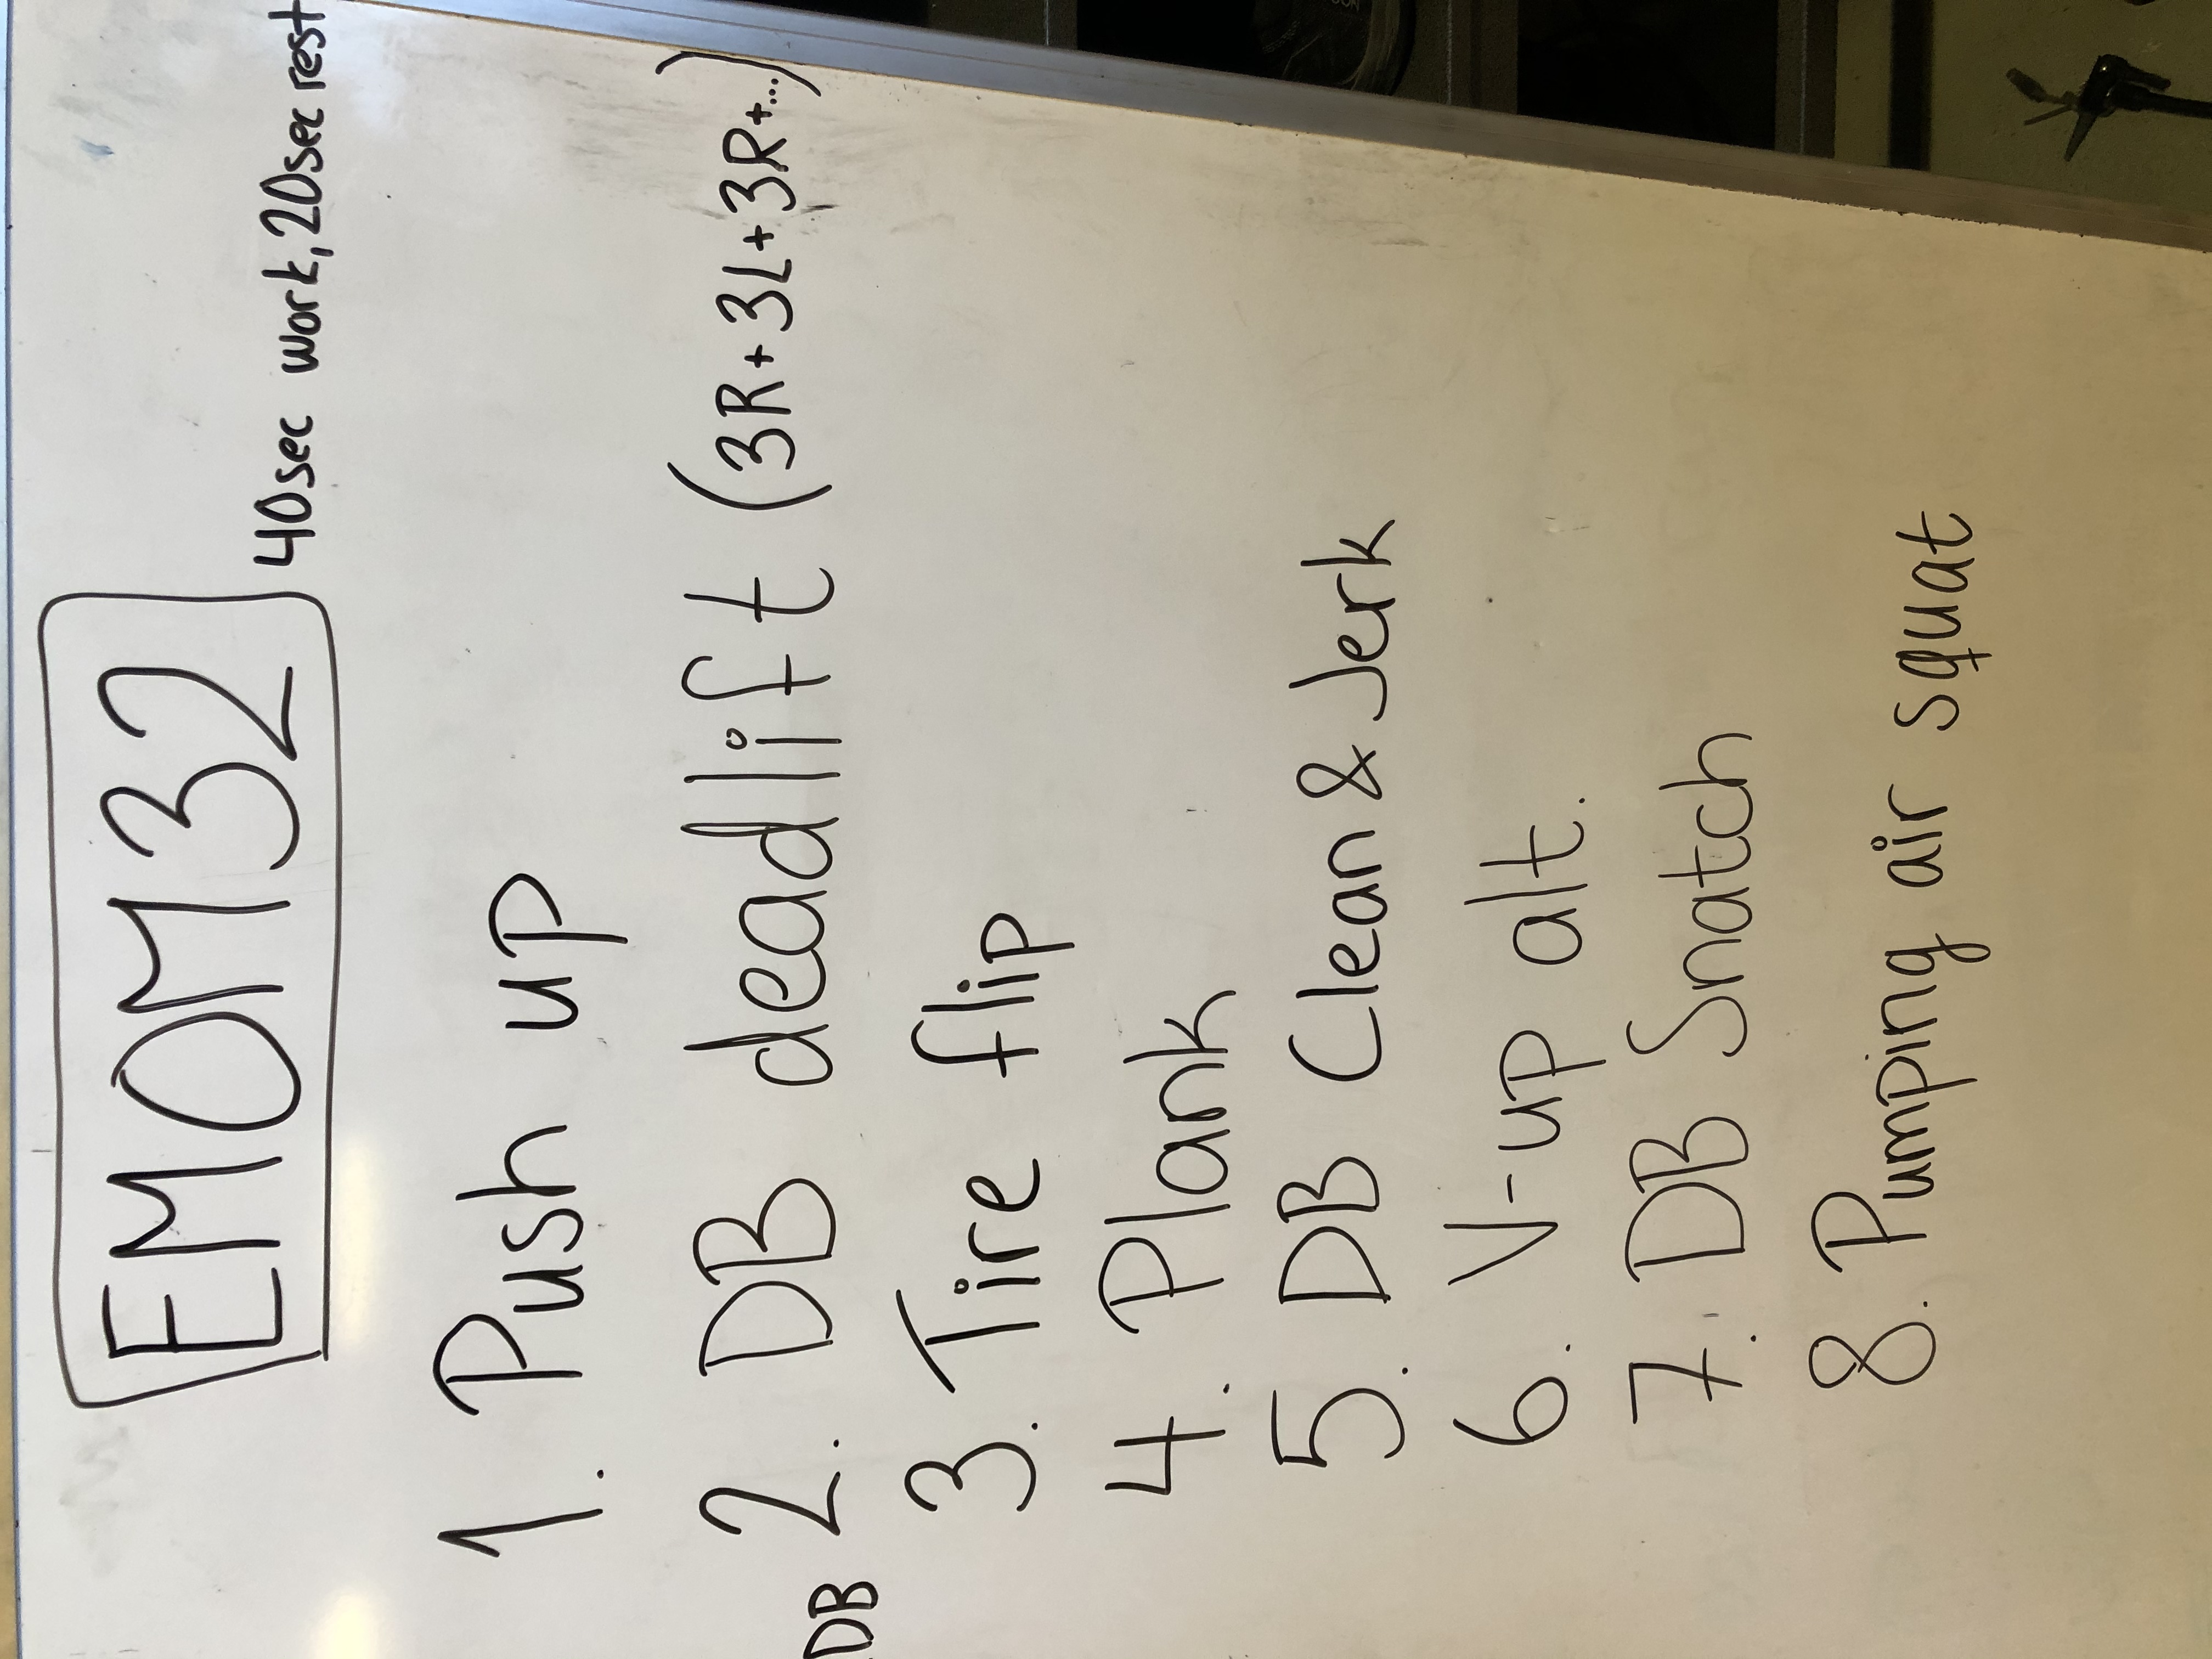 EMOM32
40sec work, 20sec rest
1. Push up
DB 2. DB deadlift (3R+3L+3R+...)
3. Tire flip
4. Plank
5. DB Clean & Jerk
6. V-up alt.
7. DB Snatch
8. Pumping air squat